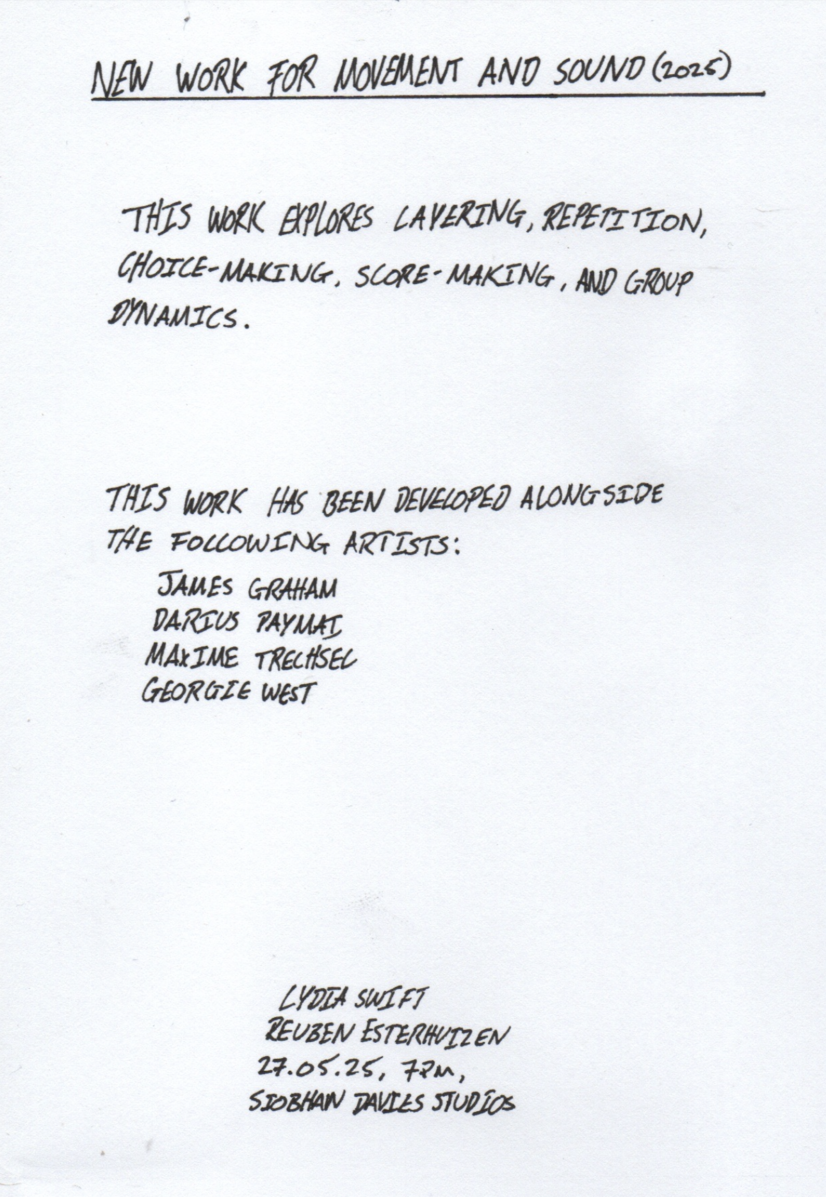 NEW WORK FOR MOVEMENT AND SOUND (2025)
THIS WORK EXPLORES LAYERING, REPETITION,
CHOICE-MAKING, SCORE-MAKING, AND GROUP
DYNAMICS.
THIS WORK HAS BEEN DEVELOPED ALONGSIDE
THE FOLLOWING ARTISTS:
JAMES GRAHAM
DARIUS PAYMAI
MAXIME TRECHSEL
GEORGIE WEST
LYDIA SWIFT
REUBEN ESTERHUIZEN
27.05.25, 7PM,
SIOBHAN DAVIES STUDIOS